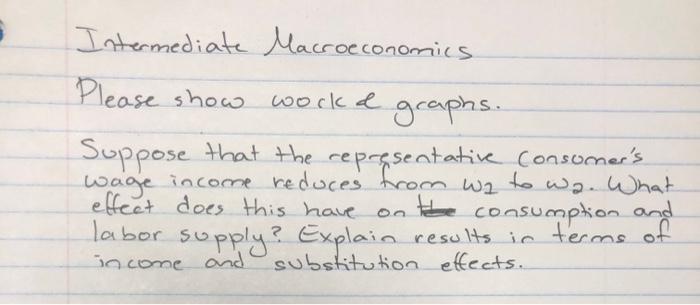 Intermediate Macroeconomics
Please show work & graphs.
Suppose that the representative consumer's
wage income reduces from w2 to w2. What
effect does this have on the consumption and
labor supply? Explain results in terms of
income and substitution effects.